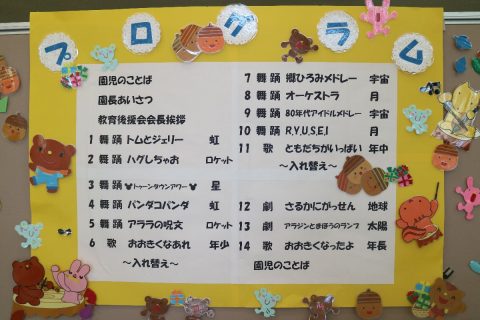 プログラム
園児のことば
園長あいさつ
教育後援会会長挨拶
1 舞踊 トムとジェリー 虹
2 舞踊 ハグしちゃお ロケット
3 舞踊 トゥーンタウンアワー 星
4 舞踊 パンダコパンダ 虹
5 舞踊 アララの呪文 ロケット
6 歌 おおきくなあれ 年少
～入れ替え～
7 舞踊 郷ひろみメドレー 宇宙
8 舞踊 オーケストラ 月
9 舞踊 80年代アイドルメドレー 宇宙
10 舞踊 R.Y.U.S.E.I 月
11 歌 ともだちがいっぱい 年中
～入れ替え～
12 劇 さるかにがっせん 地球
13 劇 アラジンとまほうのランプ 太陽
14 歌 おおきくなったよ 年長
園児のことば